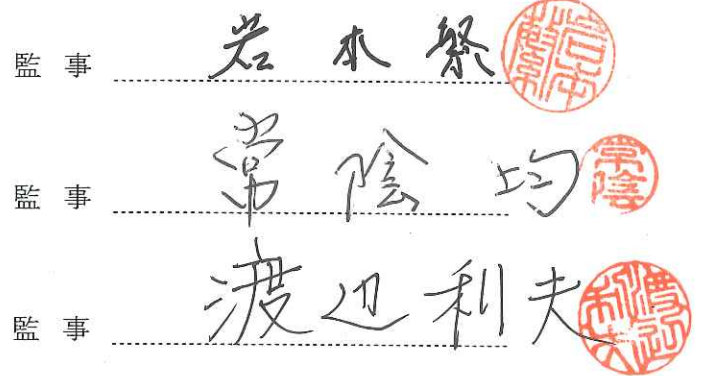 監事 岩本繁
監事 常陰均
常陰
監事 渡辺利夫